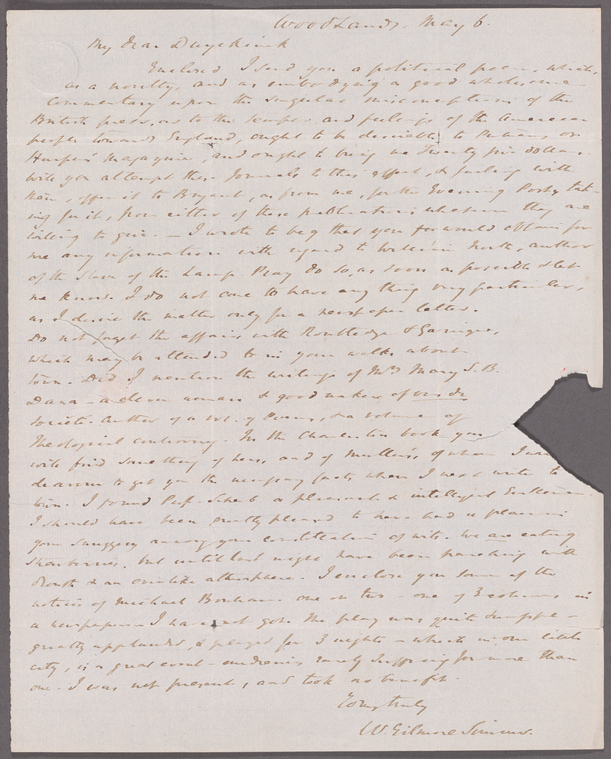 Woodlands. May 6.
My dear Duyckinck
Enclosed I send you a political poem, which,
as a novelty, and as embodying a good wholesome
commentary upon the singular misconception of the
British press, as to the temper and feelings of the American
people towards England, ought to be desirable to Putnam or
Harper's Magazine, and ought to bring me Twenty five dollars.
Will you attempt these Journals to this effect, & failing with
them, offer it to Bryant, as from me, for the Evening Post, tak-
ing for it, from either of these publications, whatever they are
willing to give. — I wrote to beg that you would obtain for
me any information with regard to William North, author
of the Slave of the Lamp. Pray do so, as soon as possible & let
me know. I do not care to have any thing very particular,
as I desire the matter only for a newspaper letter.
Do not forget the affairs with Routledge & Garrigue,
which may be attended to in your walks about
town. Did I mention the writings of Mrs Mary S. B.
Dana — a clever woman & good maker of vers de
societe. Author of a vol. of Poems, & a volume of
Theological controversy. In the Charleston book you
will find something of hers, and of Mullers, of whom I
to get you the necessary facts when I next write to
town. I found Prof. a pleasant & intelligent Gentleman.
I should have been greatly pleased to have had a place in
your snuggery among your constellation of wits. We are eating
strawberries, but until last night have been parching with
drouth & an ovenlike atmosphere. I enclose you some of the
notices of Michael Bonham. One or two — one of in
a newspaper — I have not got. The play was quite successful —
greatly applauded, & played for 3 nights — which in our little
city, is a great event — audiences rarely sufficing for more than
one. I was not present, and took no benefit.
Yours truly
W. Gilmore Simms.